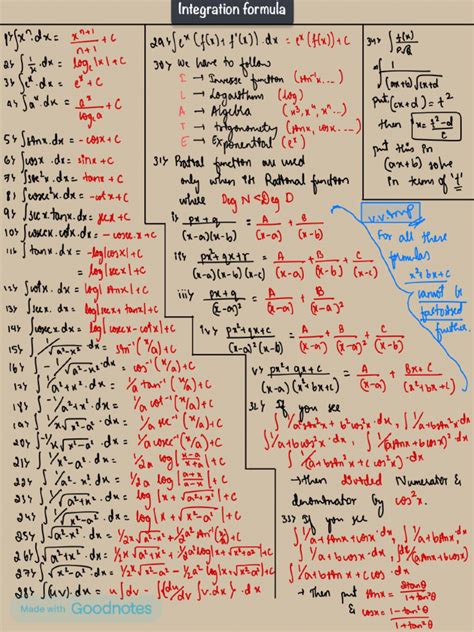 Integration formula
1) ∫xⁿ.dx = xⁿ⁺¹/n+1 + c
2) ∫1/x.dx = logₑ|x|+c
3) ∫eˣ.dx = eˣ+c
4) ∫aˣ.dx = aˣ/logₑa + c
5) ∫sinx.dx = -cosx+c
6) ∫cosx.dx = sinx+c
7) ∫sec²x.dx = tanx+c
8) ∫cosec²x.dx = -cotx+c
9) ∫secx tanx.dx = secx+c
10) ∫cosecx.cotx.dx = -cosecx+c
11) ∫tanx.dx = -log|cosx|+c
= log|secx|+c
12) ∫cotx.dx = log|sinx|+c
13) ∫secx.dx = log|secx+tanx|+c
14) ∫cosecx.dx = log|cosecx-cotx|+c
15) ∫1/√a²-x².dx = sin⁻¹(x/a)+c
16) ∫-1/√a²-x².dx = cos⁻¹(x/a)+c
17) ∫1/a²+x².dx = 1/a tan⁻¹(x/a)+c
18) ∫-1/a²+x².dx = 1/a cot⁻¹(x/a)+c
19) ∫1/x√x²-a².dx = 1/a sec⁻¹(x/a)+c
20) ∫-1/x√x²-a².dx = 1/a cosec⁻¹(x/a)+c
21) ∫1/x²-a².dx = 1/2a log|x-a/x+a|+c
22) ∫1/a²-x².dx = 1/2a log|a+x/a-x|+c
23) ∫1/√a²+x².dx = log|x+√x²+a²|+c
24) ∫1/√x²-a².dx = log|x+√x²-a²|+c
25) ∫√a²-x².dx = 1/2x√a²-x²+1/2a² sin⁻¹(x/a)+c
26) ∫√a²+x².dx = 1/2x√a²+x²+1/2a²log|x+√x²+a²|+c
27) ∫√x²-a².dx = 1/2x√x²-a²-1/2a²log|x+√x²-a²|+c
28) ∫(u.v).dx = u∫v.dx - ∫{du/dx∫v.dx}.dx
Made with Goodnotes
29) ∫eˣ(f(x)+f'(x)).dx = eˣ(f(x))+c
30) We have to follow
I → Inverse function (sin⁻¹x....)
L → Logarithm (log)
A → Algebra (x³,x⁴,xⁿ...)
T → trigonometry (sinx, cosx...)
E → Exponential (eˣ)
31) Partial function are used
only when it Rational function
where Deg N < Deg D
i) px+q/(x-a)(x-b) = A/(x-a) + B/(x-b)
ii) px²+qx+r/(x-a)(x-b)(x-c) = A/(x-a) + B/(x-b) + C/(x-c)
iii) px+q/(x-a)² = A/(x-a) + B/(x-a)²
iv) px²+qx+c/(x-a)²(x-b) = A/(x-a) + B/(x-a)² + C/(x-b)
v) px²+qx+c/(x-a)(x²+bx+c) = A/(x-a) + Bx+C/(x²+bx+c)
32) If you see
∫1/asin²x+bcos²x.dx, ∫1/a+bsin²x.dx
∫1/a+bcos²x.dx, ∫1/(asinx+bcosx)².dx
∫1/(a+bsin²x+ccos²x).dx
→ then Divided Numerator &
denominator by cos²x.
33) If you see
∫1/asinx+bcosx.dx, ∫1/a+bsinx.dx
∫1/a+bcosx.dx, ∫1/(asinx+bcosx).dx
∫1/a+bsinx+ccosx.dx
→ Then put sinx = 2tanθ/1+tan²θ
& cosx = 1-tan²θ/1+tan²θ
34) ∫f(x)/P√Q
∫1/(ax+b)√cx+d
put (cx+d) = t²
then x = t²-d/c
put this in
(ax+b) solve
in term of 't'
v.v.imp
For all these
formulas
x²+bx+c
cannot be
factorised
further.